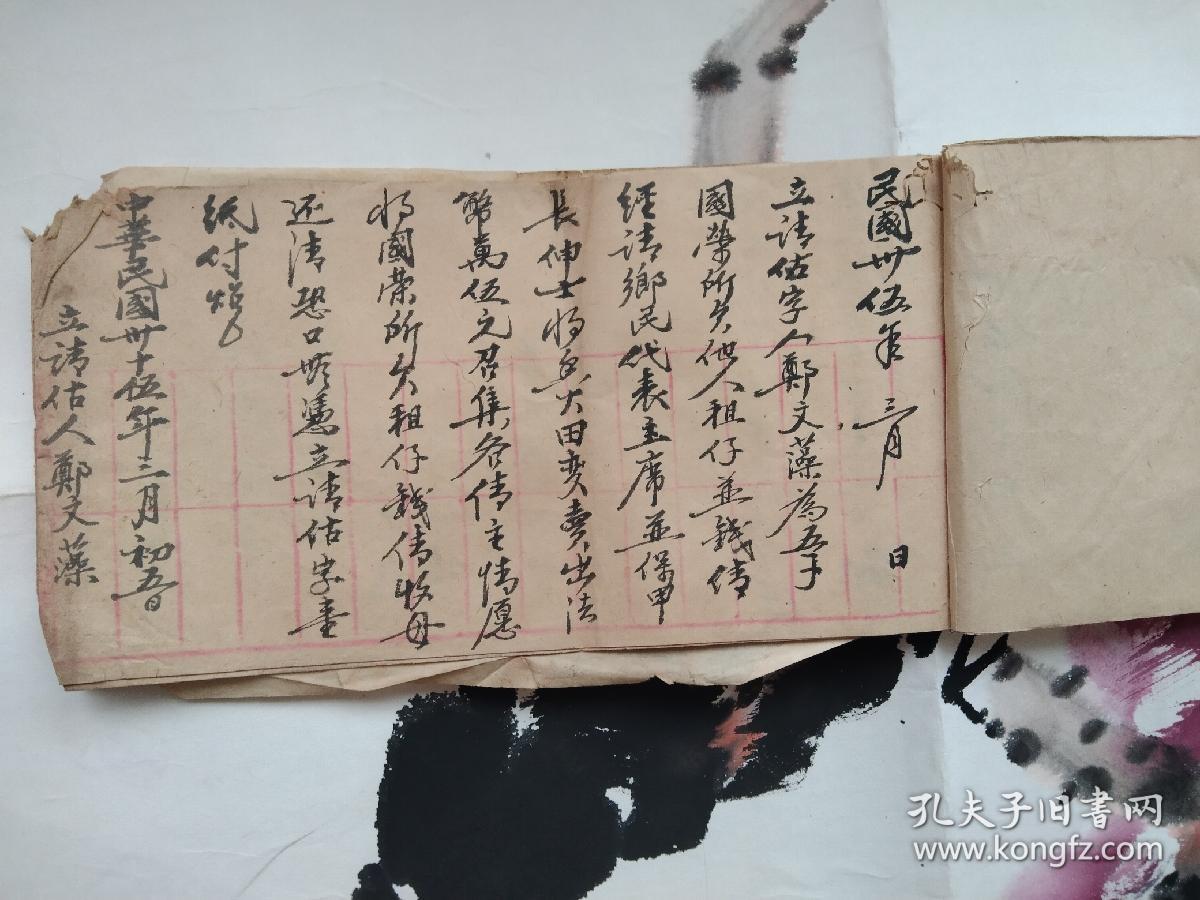 民國卅伍年 三月 日
立請估字人鄭文藻為五手
國榮所欠他人租仔並錢債
經請鄉民代表主席並保甲
長伸士將 大田賣出法
萬伍元召集各債主情愿
將國榮所欠租仔錢債收母
还清恐口無憑立請估字壹
紙付炤
中華民國卅十伍年三月初五日
立請估人鄭文藻
孔夫子旧书网
www.kongfz.com